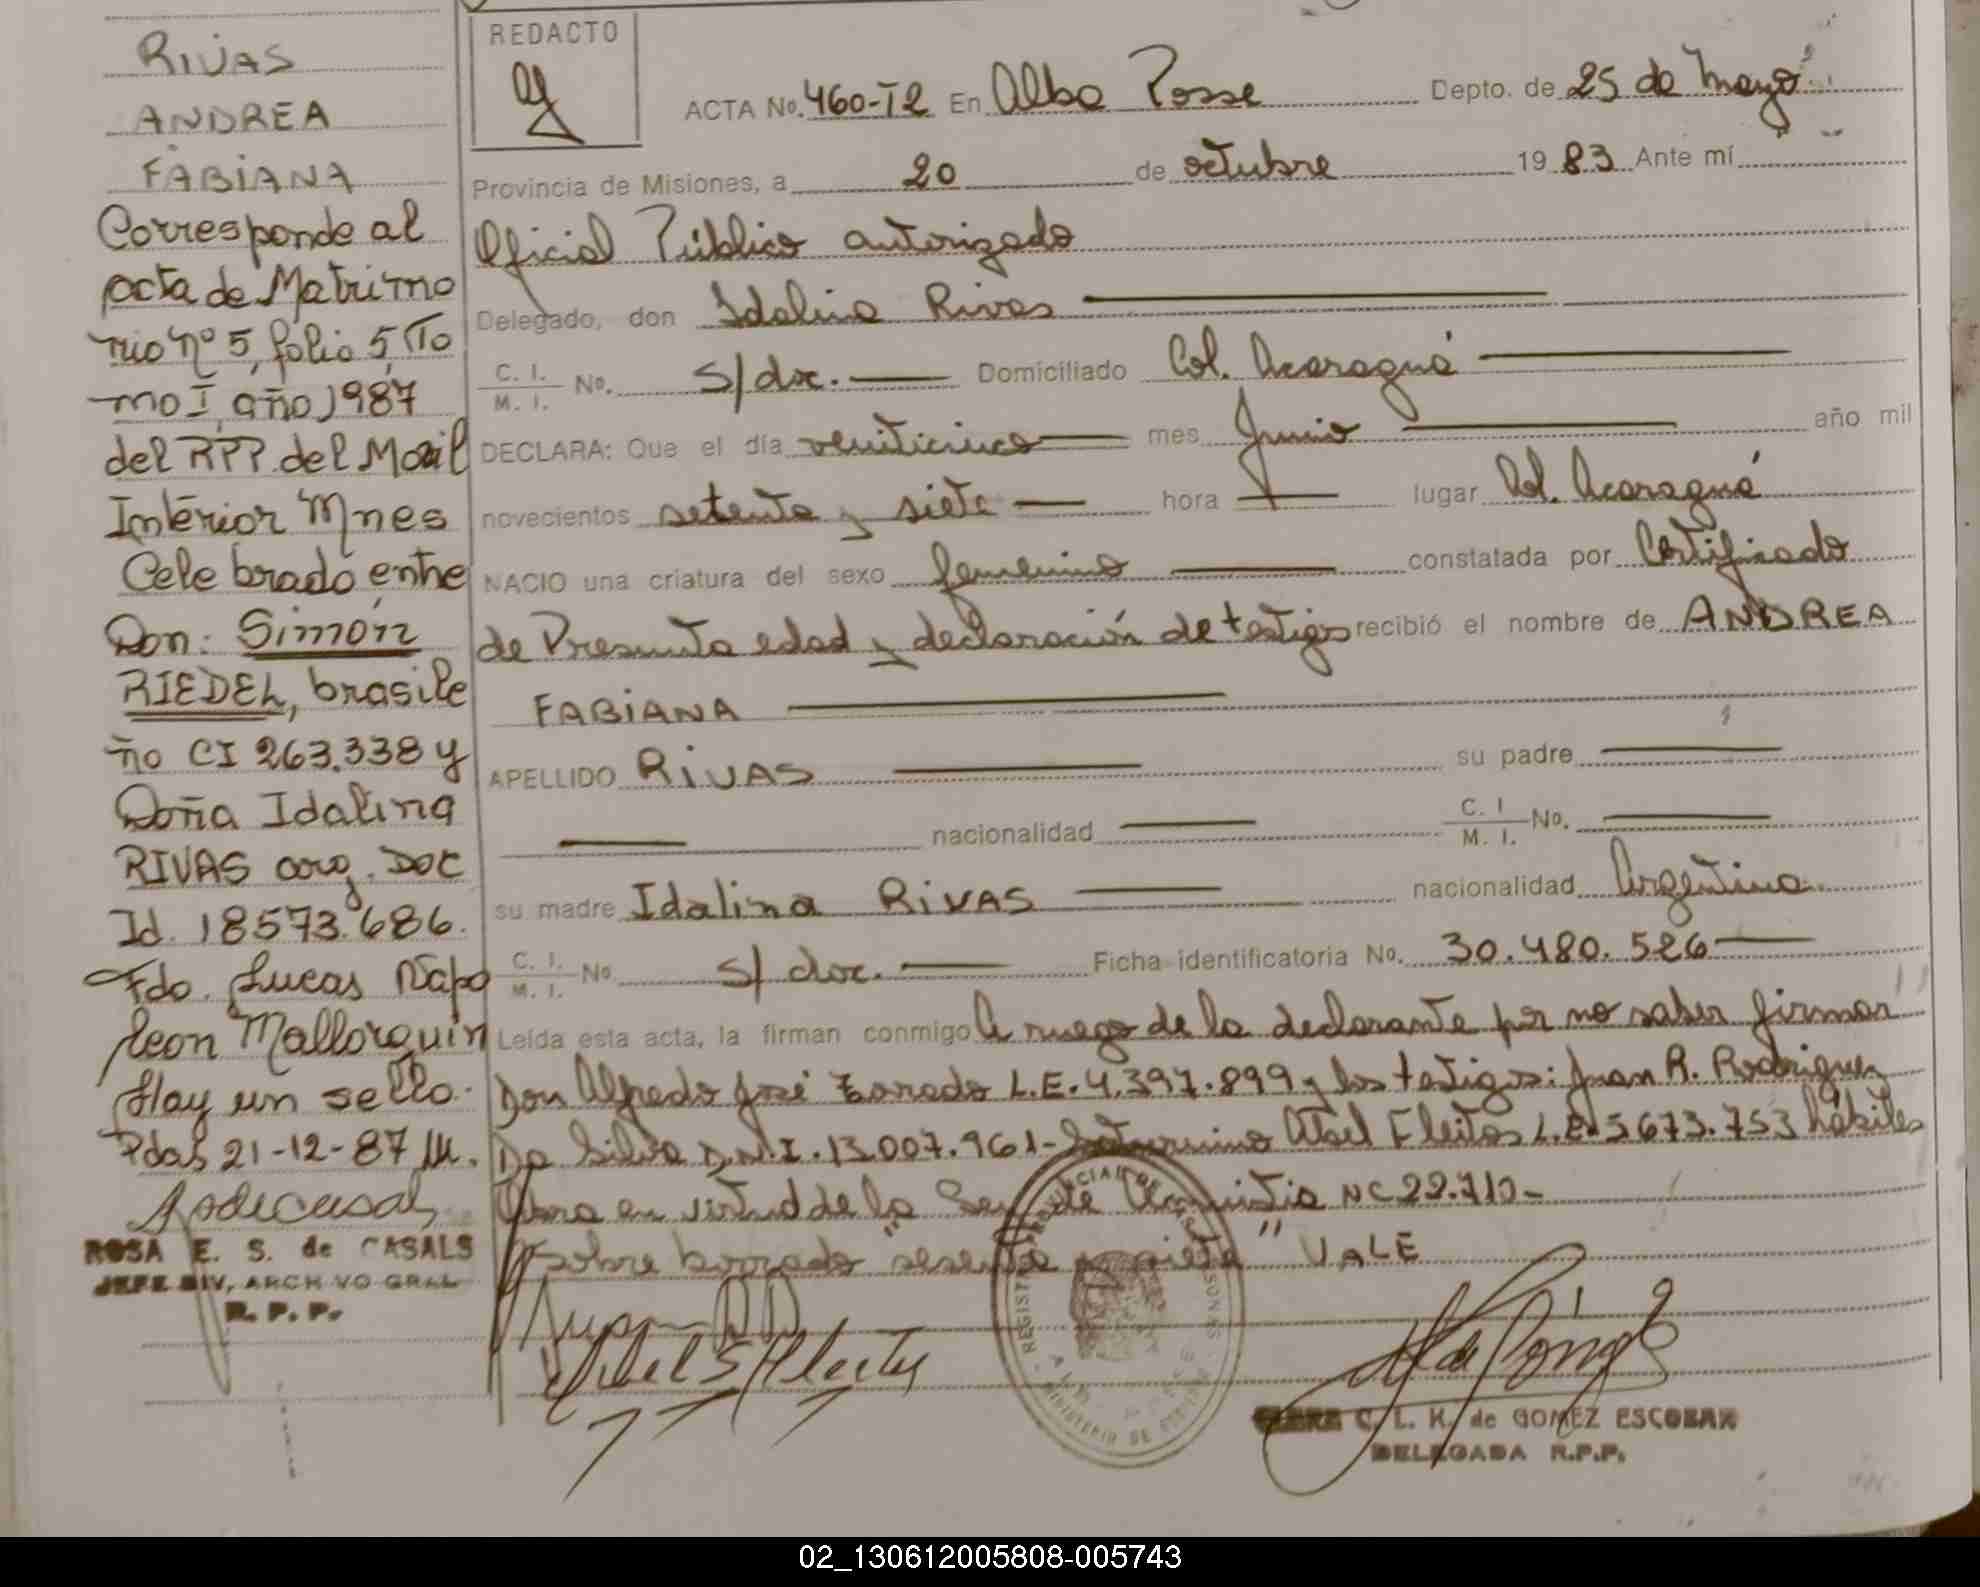 RIVAS
ANDREA
FABIANA
Corresponde al
acta de Matrimo
nio nº 5, folio 5, To
mo I, año 1987
del RPP. del Moail
Interior Mnes
Celebrado entre
Don: Simón
RIEDEL, brasile
ño CI 263.338 y
Doña Idalina
RIVAS arg. Doc
Id. 18573.686.
Fdo. Lucas Napo
leon Mallorquin
Hay un sello.
Pdas 21-12-87
ROSA E. S. de CASALS
JEFE DIV. ARCHIVO GRAL
R. P. P.
REDACTO
ACTA No. 460-T2 En Alba Posse Depto. de 25 de Mayo
Provincia de Misiones, a 20 de octubre 19 83 Ante mí
Oficial Público autorizado
Delegado, don Idalina Rivas
C. I. / M. I. No. s/doc. Domiciliado Col. Acaraguá
DECLARA: Que el día veinticinco mes Junio año mil
novecientos setenta y siete hora lugar Col. Acaraguá
NACIO una criatura del sexo femenino constatada por Certificado
de Presunta edad y declaración de testigos recibió el nombre de ANDREA
FABIANA
APELLIDO RIVAS su padre
nacionalidad C. I. / M. I. No.
su madre Idalina RIVAS nacionalidad Argentina.
C. I. / M. I. No. s/ doc. Ficha identificatoria No. 30.480.526
Leída esta acta, la firman conmigo A ruego de la declarante por no saber firmar
Don Alfredo José L.E. 4.397.899 y los testigos: Juan R. Rodriguez
Da Silva D.N.I. 13.007.961- Saturnino Abel Fleitas L.E. 5673.753 hábiles
Obra en virtud de la Ley de Amnistia Nº 22.710-
sobre borrado "setenta y siete" VALE
C. L. K. de GOMEZ ESCOBAR
DELEGADA R.P.P.
02_130612005808-005743